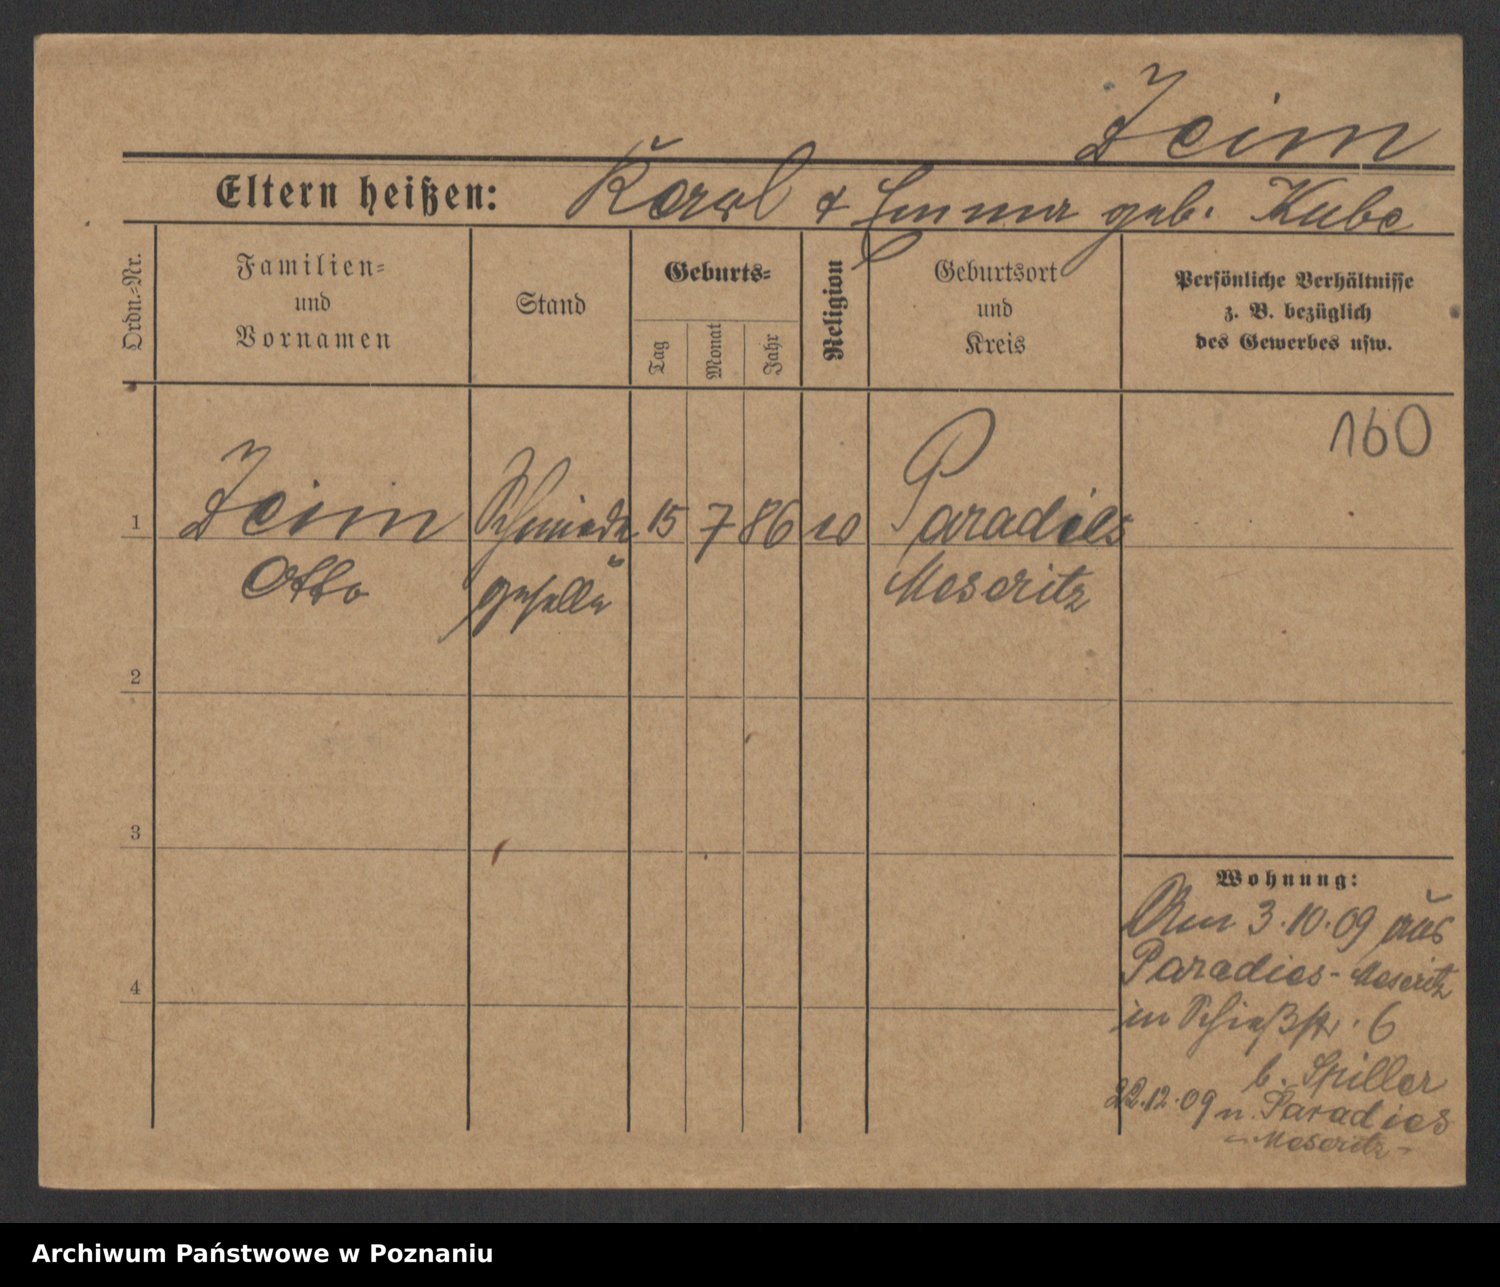 Zeim
Eltern heißen: Karl & Emma geb. Kube
Ordn.=Nr.
Familien=
und
Vornamen
Stand
Geburts=
Tag
Monat
Jahr
Religion
Geburtsort
und
Kreis
Persönliche Verhältnisse
z. B. bezüglich
des Gewerbes usw.
160
1 Zeim Schmiede 15 7 86 Paradies
Otto geselle Meseritz
2
3
4
Wohnung:
Am 3.10.09 aus
Paradies - Meseritz
in Schießstr. 6
b. Spiller
22.12.09 n. Paradies
- Meseritz -
Archiwum Państwowe w Poznaniu